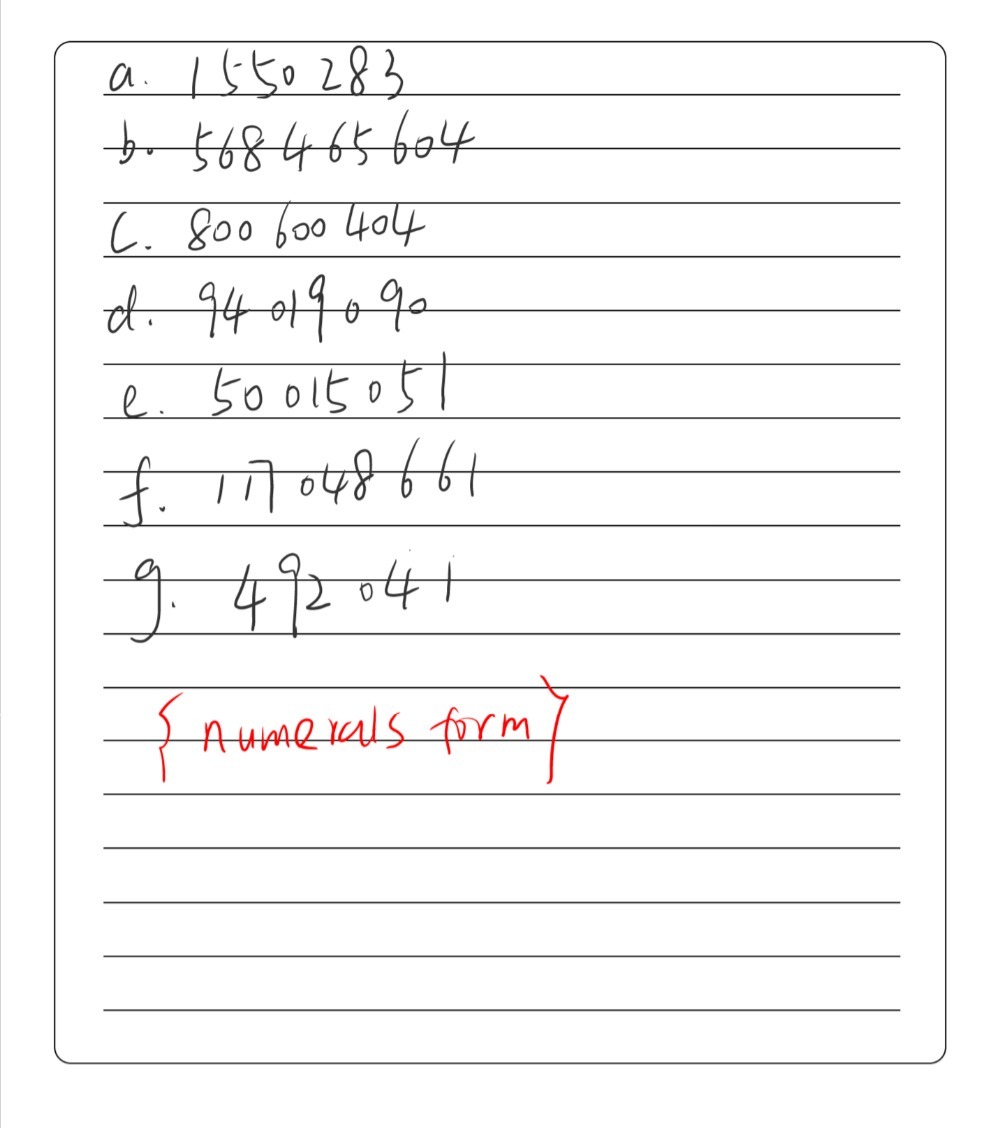 a. 1 550 283
b. 568 465 604
C. 800 600 404
d. 94 019 090
e. 50 015 051
f. 117 048 661
g. 492 041
{ numerals form }